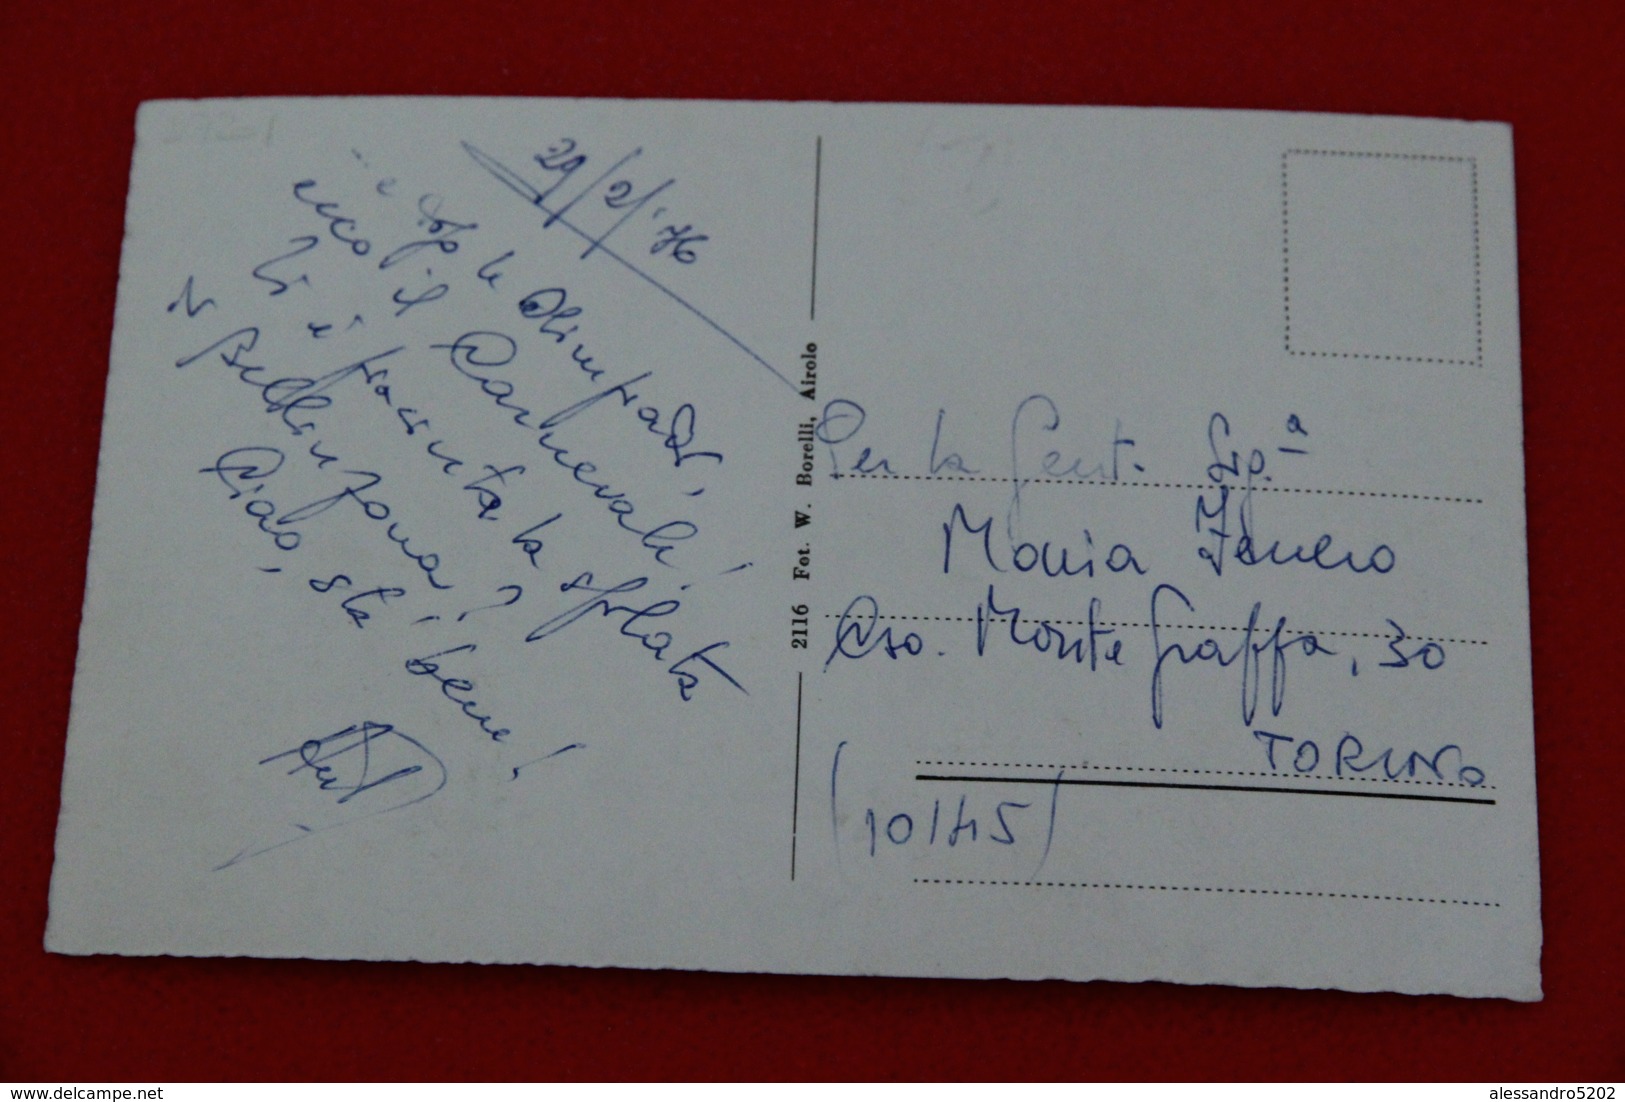 29/2/'76
e dopo le Olimpiadi,
ecco il Carnevale!
Ti è piaciuta la sfilata
di Bellinzona?
Ciao, sta' bene!
2116 Fot. W. Borelli, Airolo
Per la Gent. Sig.ia
Monia
Cso. Monte Grappa, 30
TORINO
(10145)
delcampe.net
alessandro5202